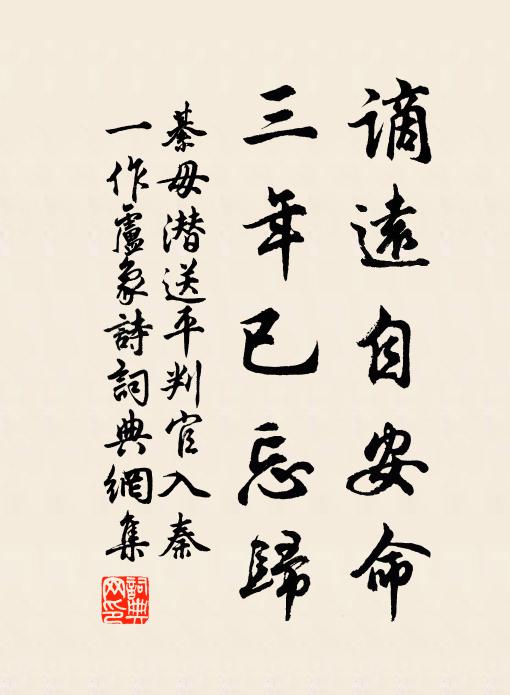 謫遠自安命
三年已忘歸
綦毋潜送平判官入秦
一作盧象詩詞典網集
詞典網印